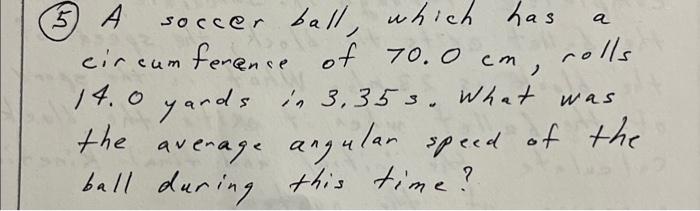 ⑤ A soccer ball, which has a
circumference of 70.0 cm, rolls
14.0 yards in 3.35 s. What was
the average angular speed of the
ball during this time?